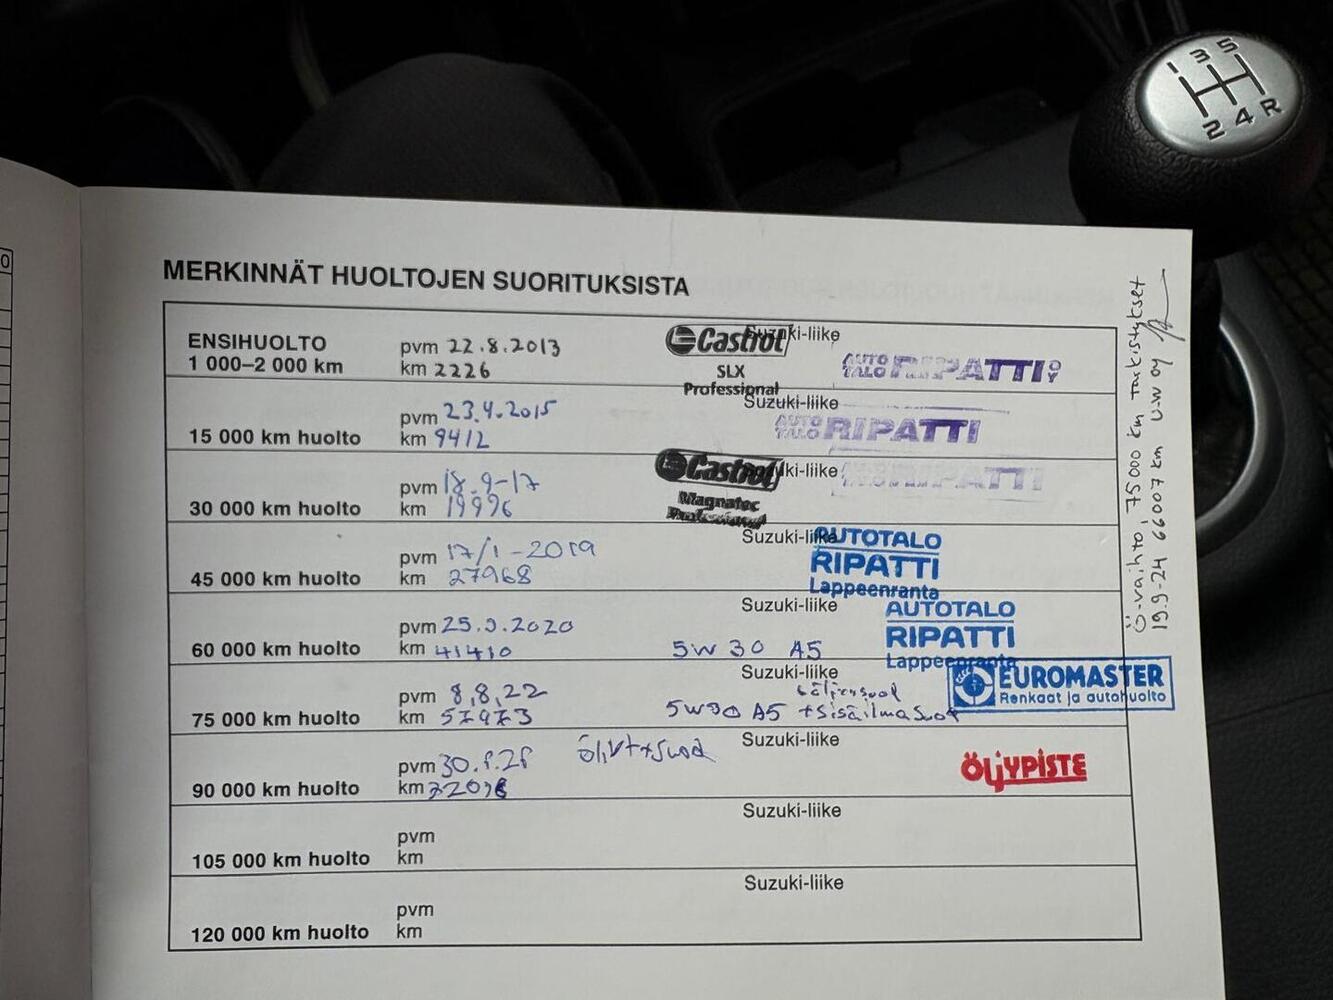 1 3 5
2 4 R
0
MERKINNÄT HUOLTOJEN SUORITUKSISTA
ENSIHUOLTO
1 000–2 000 km
pvm 22.8.2013
km 2226
Castrol
SLX
Professional
Suzuki-liike
AUTO TALO RIPATTI OY
15 000 km huolto
pvm 23.4.2015
km 9412
Suzuki-liike
AUTO TALO RIPATTI
30 000 km huolto
pvm 18.9-17
km 19996
Castrol
Magnatec
Professional
Suzuki-liike
RIPATTI
45 000 km huolto
pvm 17/1-2019
km 27968
Suzuki-liike
AUTOTALO
RIPATTI
Lappeenranta
60 000 km huolto
pvm 25.9.2020
km 41410
5W30 A5
Suzuki-liike
AUTOTALO
RIPATTI
Lappeenranta
75 000 km huolto
pvm 8,8,22
km 57973
Suzuki-liike
5W30 A5 +sisäilmasuod
EUROMASTER
Renkaat ja autohuolto
90 000 km huolto
pvm 30.
km
Suzuki-liike
ÖLJYPISTE
105 000 km huolto
pvm
km
Suzuki-liike
120 000 km huolto
pvm
km
Suzuki-liike
Ö-vaihto, 75000 km tarkistukset
19.9-24 66007 km